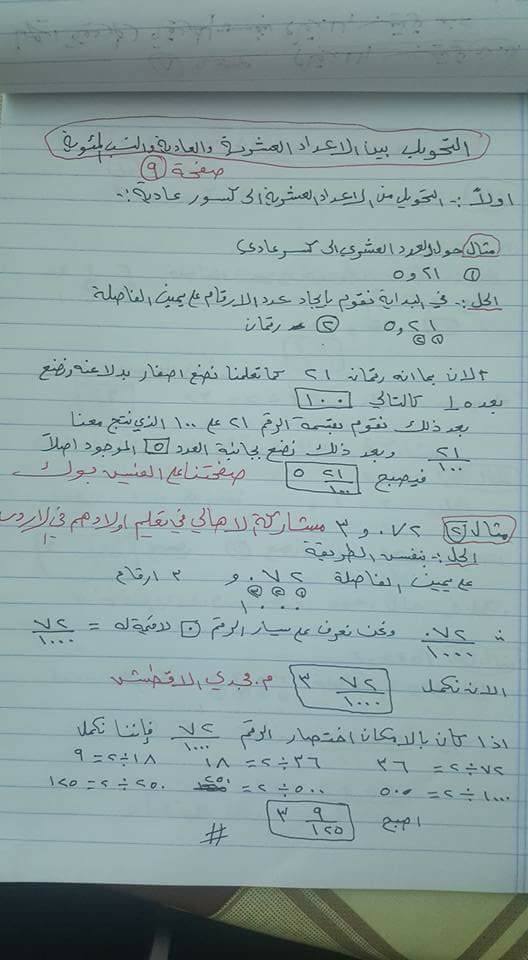 التحويل بين الاعداد العشرية والعادية والنسب المئوية
صفحة ٩
اولاً :- التحويل من الاعداد العشرية الى كسور عادية :-
مثال حول العدد العشري الى كسر عادي
① ٢١ و ٥
الحل :- في البداية نقوم بايجاد عدد الارقام على يمين الفاصلة
٢١ و ٥ ② رقمان
① ②
الآن بما انه رقمان ٢١ كما تعلمنا نضع اصفار بدلا عنه ونضع
بعده ١ كالتالي ١٠٠
بعد ذلك نقوم بقسمة الرقم ٢١ على ١٠٠ الذي ينتج معنا
٢١/١٠٠ وبعد ذلك نضع بجانبة العدد ٥ الموجود اصلاً
فيصبح ٥ ٢١/١٠٠ صفحتنا على الفيس بوك
مثال ② ٠٧٢ و ٣ مشاركة الاهالي في تعليم اولادهم في الاردن
الحل :- بنفس الطريقة
على يمين الفاصلة ٠٧٢ و ٣ ارقام
③ ② ①
١٠٠٠
٠٧٢/١٠٠٠ ونحن نعرف على يسار الرقم ٠ لا قيمة له = ٧٢/١٠٠٠
الان نكمل ٣ ٧٢/١٠٠٠ م. مجدي الاقطش
اذا كان بالامكان اختصار الرقم ٧٢/١٠٠٠ فإننا نكمل
٧٢÷٢= ٣٦ ٣٦÷٢= ١٨ ١٨÷٢= ٩
١٠٠٠÷٢= ٥٠٠ ٥٠٠÷٢= ٢٥٠ ٢٥٠÷٢= ١٢٥
اصبح ٣ ٩/١٢٥
#